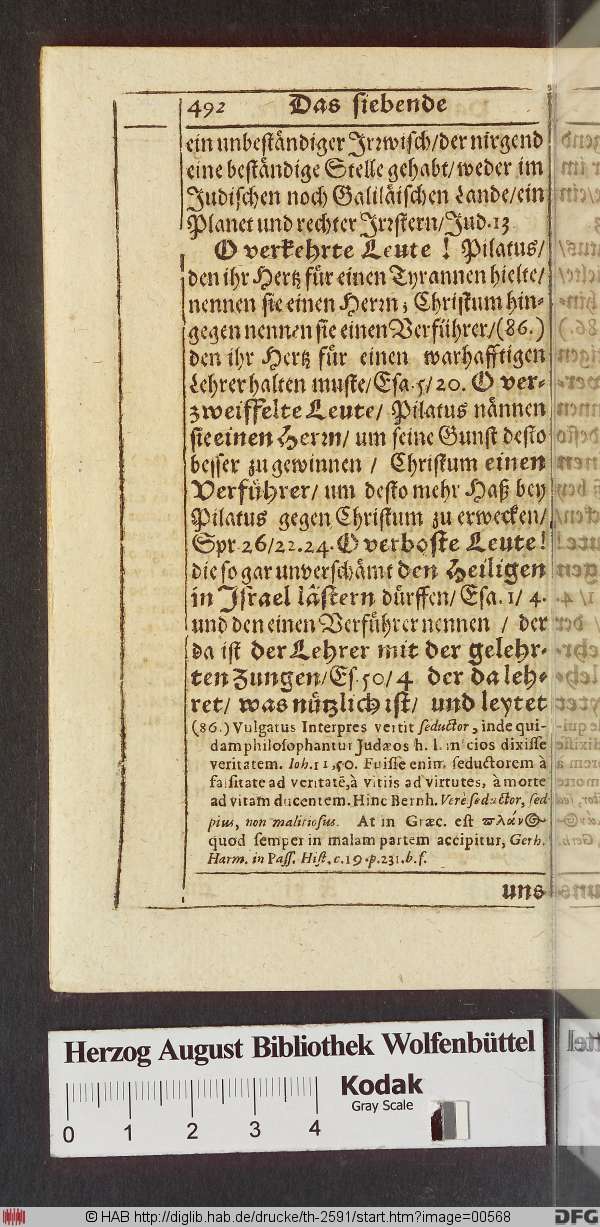 492 Das siebende
ein unbeständiger Jrꝛwisch/der nirgend
eine beständige Stelle gehabt/weder im
Judischen noch Galiläischen Lande/ein
Planet und rechter Jrꝛstern/Jud.13
O verkehrte Leute ! Pilatus/
den ihr Hertz für einen Tyrannen hielte/
nennen sie einen Herꝛn; Christum hin-
gegen nennen sie einen Verführer/(86.)
den ihr Hertz für einen warhafftigen
Lehrer halten muste/Esa.5/20. O ver-
zweiffelte Leute/ Pilatus nännen
sie einen Herꝛn/ um seine Gunst desto
besser zu gewinnen / Christum einen
Verführer/ um desto mehr Haß bey
Pilatus gegen Christum zu erwecken/
Spr 26/22.24. O verboste Leute!
die so gar unverschämt den Heiligen
in Jsrael lästern dürffen/ Esa. 1/ 4.
und den einen Verführer nennen / der
da ist der Lehrer mit der gelehr-
ten Zungen/Es.50/4 der da leh-
ret/ was nützlich ist/ und leytet
(86.) Vulgatus Interpres vertit seductor, inde qui-
dam philosophantur Judæos h. l. inscios dixisse
veritatem. Ioh.11,50. Fuisse enim seductorem à
falsitate ad veritatē, à vitiis ad virtutes, à morte
ad vitam ducentem. Hinc Bernh. Verè seductor, sed
pius, non malitiosus. At in Græc. est πλάνος
quod semper in malam partem accipitur, Gerh.
Harm. in Pass. Hist. c.19.p.231.b.f.
uns
Herzog August Bibliothek Wolfenbüttel
Kodak
Gray Scale
0 1 2 3 4
© HAB http://diglib.hab.de/drucke/th-2591/start.htm?image=00568
DFG